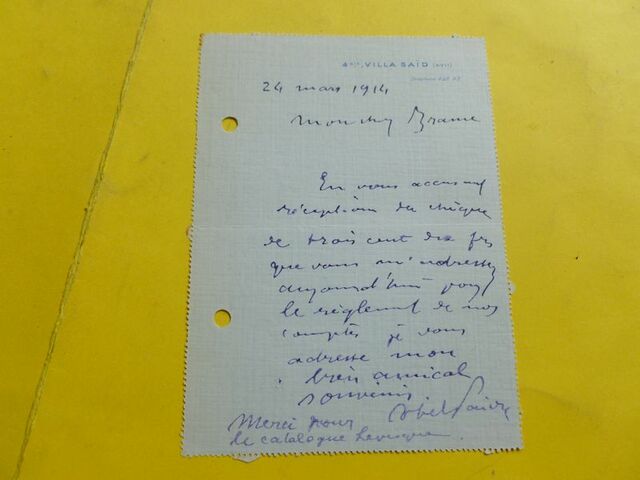 4bis, VILLA SAÏD (XVIe)
24 mars 1914
Mon cher Brame
En vous accusant
réception du chèque
de trois cent dix frs
que vous m'adressez
aujourd'hui pour
le règlement de nos
comptes je vous
adresse mon
bien amical
souvenir
Merci pour
le catalogue